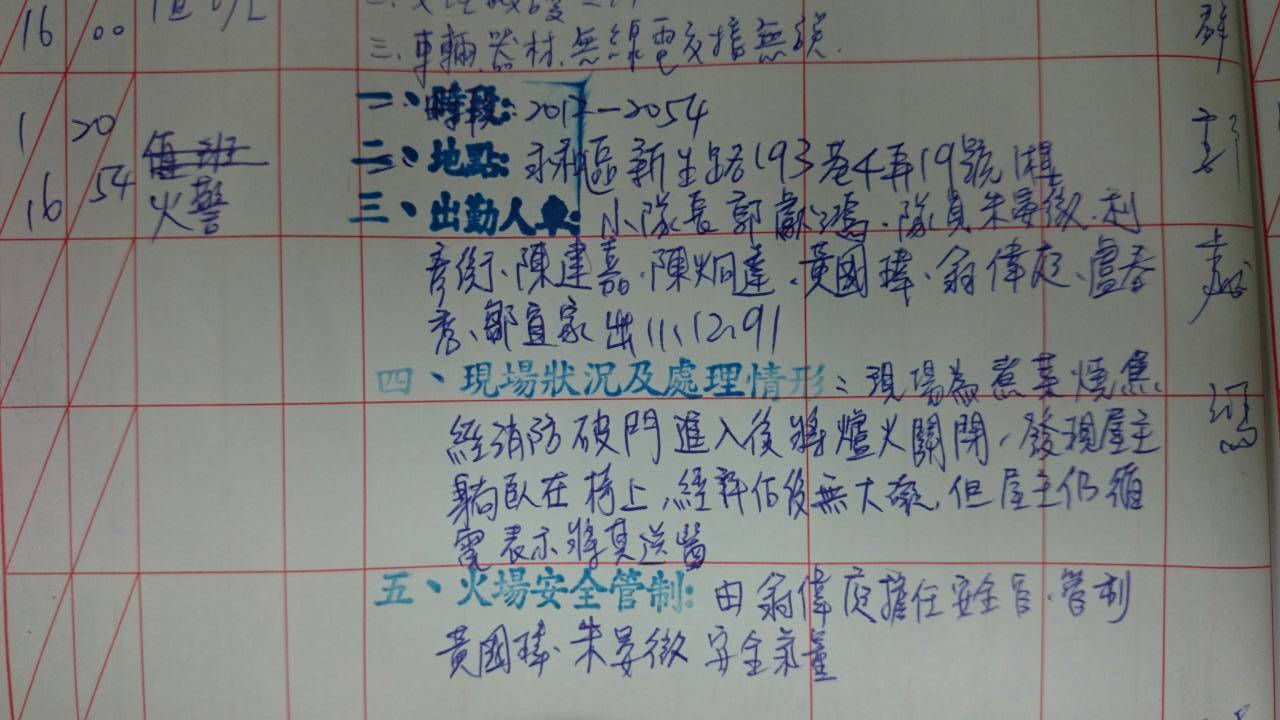 16 00
三、車輛、器材、無線電交接無誤.
一、時段: 2017-2054
1 20 值班
二、地點: 永和區新生路193巷4弄19號1樓
16 54 火警
三、出勤人車: 小隊長郭獻鴻、隊員朱晏徵、利
彥衡、陳建嘉、陳炯達、黃國瑋、翁偉庭、盧春
秀、鄒宜家出11、12、91
四、現場狀況及處理情形: 現場為煮菜燒焦
經消防破門進入後將爐火關閉,發現屋主
躺臥在椅上,經評估後無大礙,但屋主仍
表示將其送醫
五、火場安全管制: 由翁偉庭擔任安全官、管制
黃國瑋、朱晏徵安全氣量